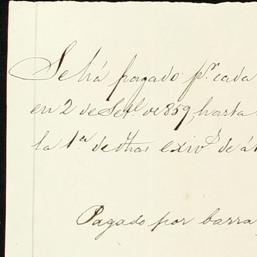 Se há pagado p.r cada
en 2 de Set.e de 859, hasta
la 1.a de dhas
Pagado por barra